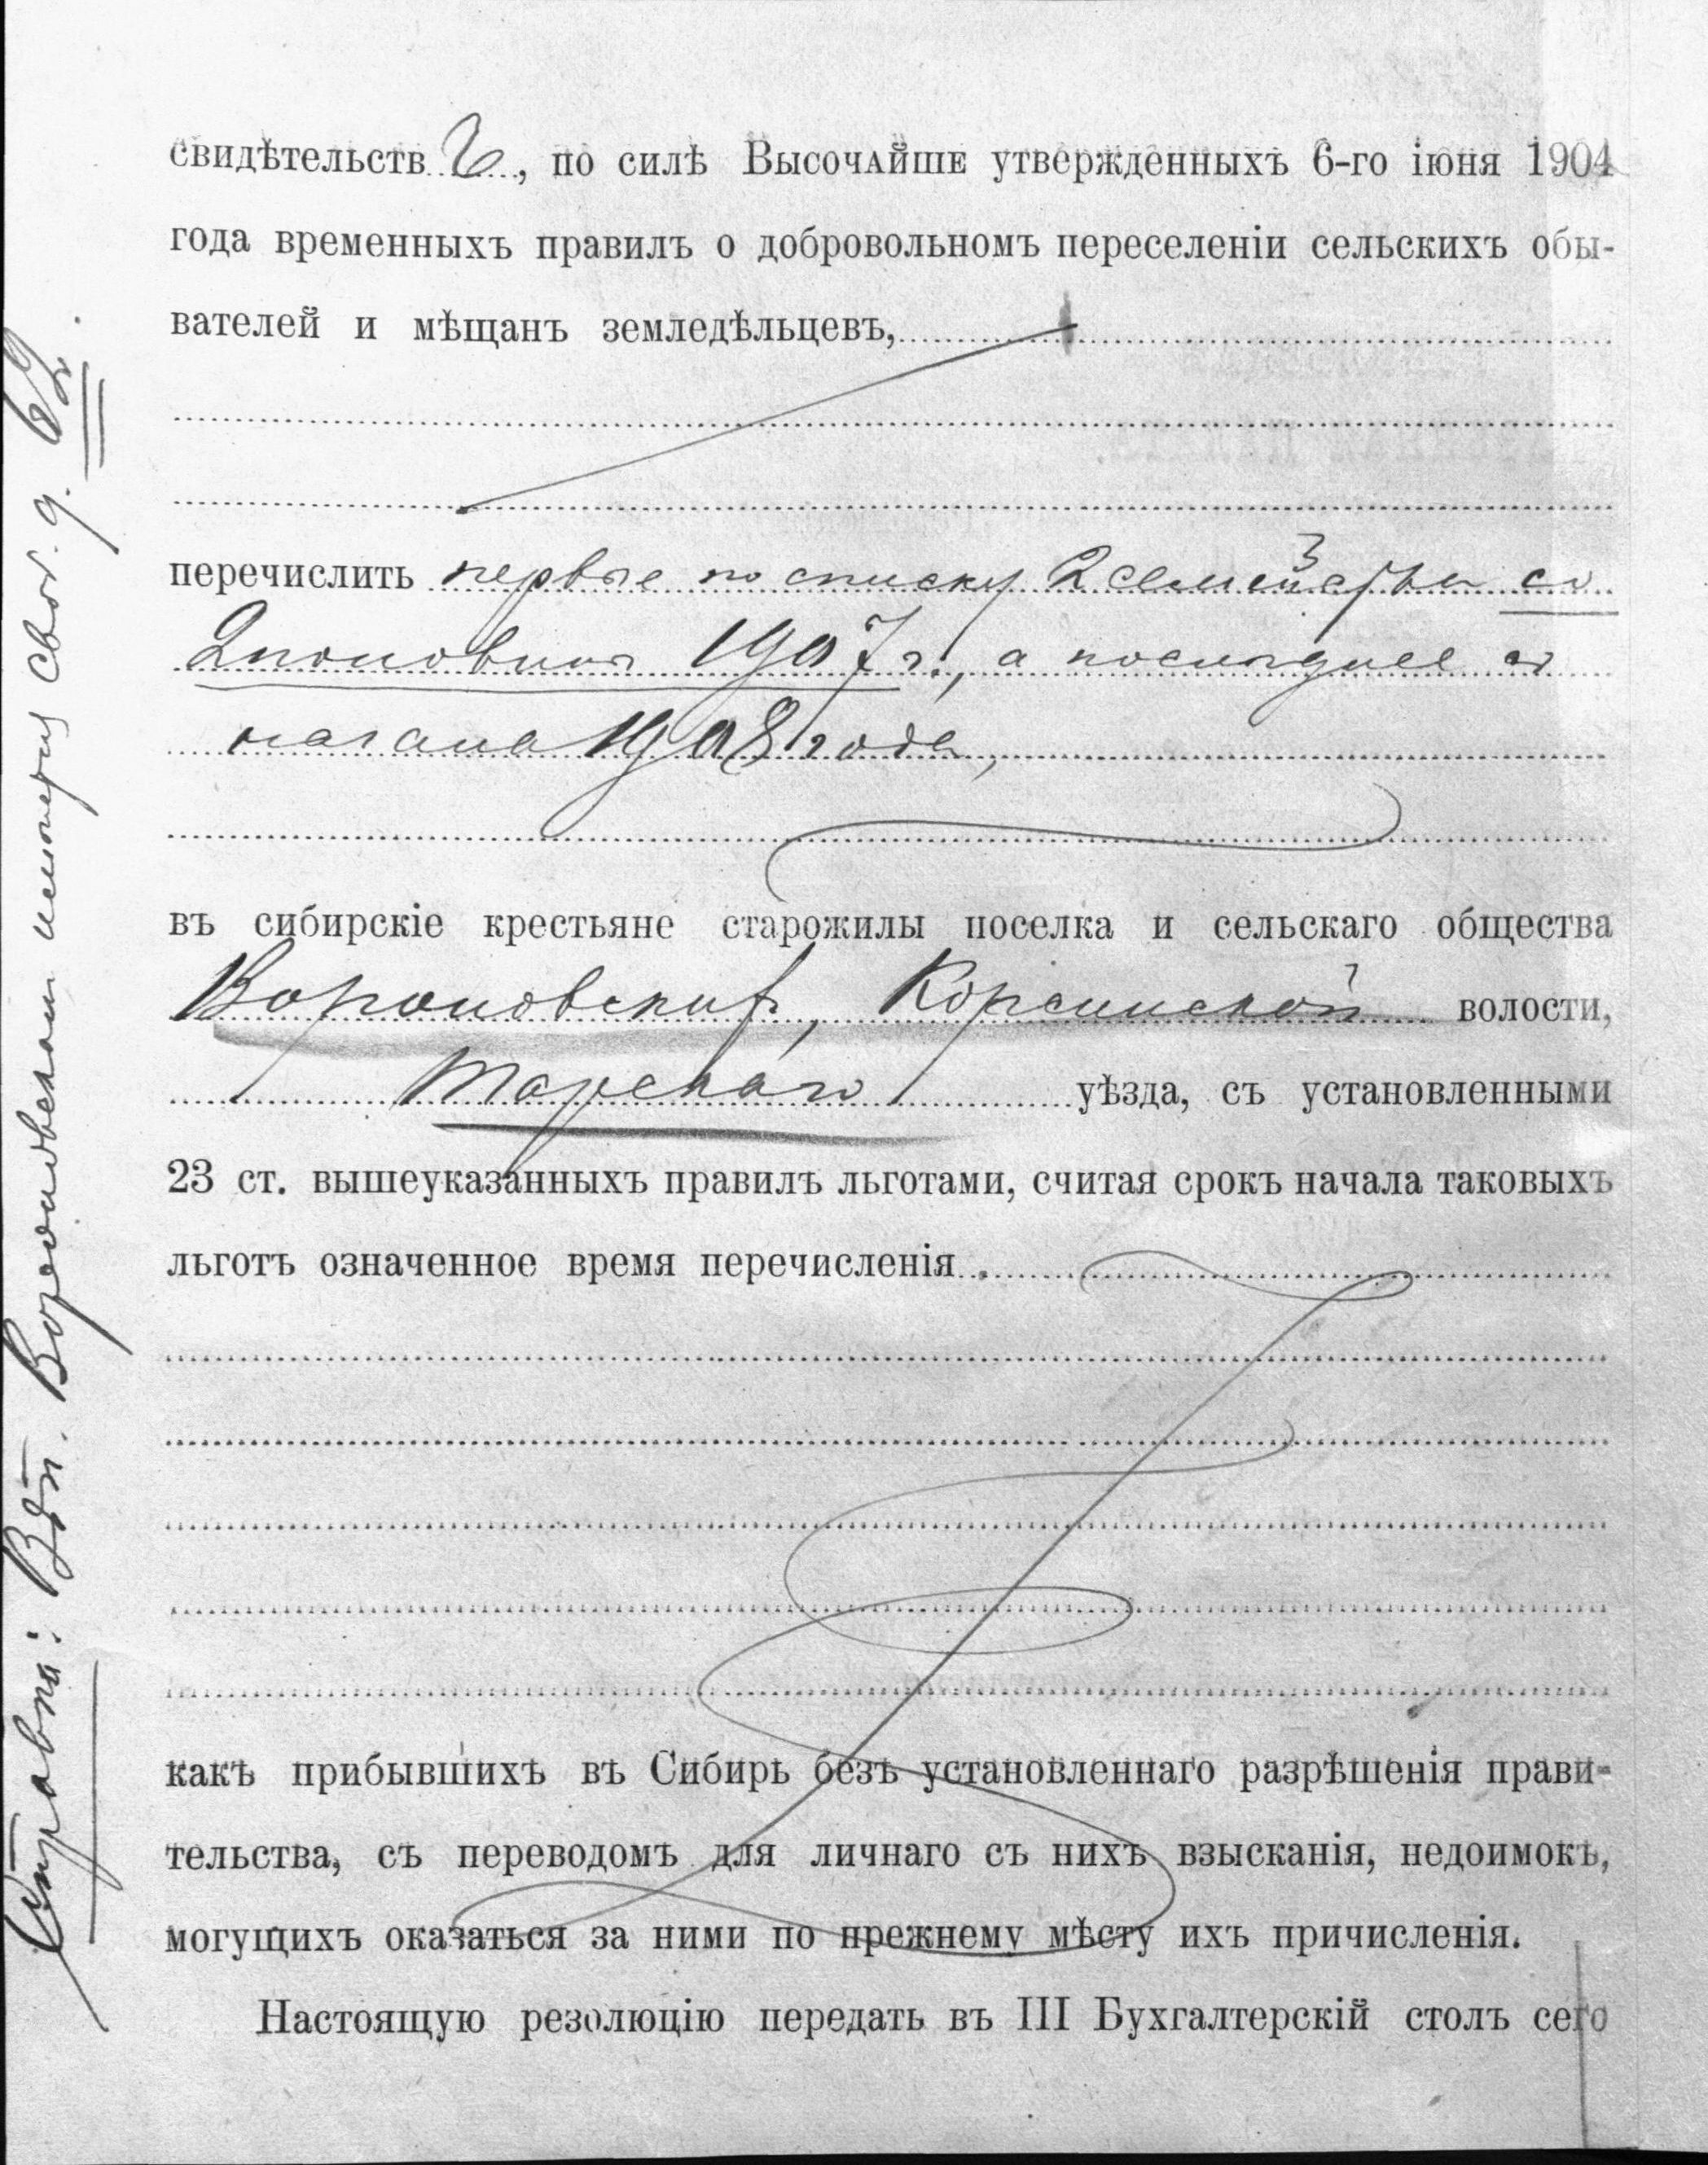 свидѣтельств, по силѣ Высочайше утвержденныхъ 6-го іюня 1904
года временныхъ правилъ о добровольномъ переселеніи сельскихъ обы-
вателей и мѣщанъ земледѣльцевъ,
перечислить первые по списку 2 семейства со
2 половины 1907 г., а последнее съ
начала 1908 года,
въ сибирскіе крестьяне старожилы поселка и сельскаго общества
Вороновскихъ, Корсинской волости,
Тарскаго уѣзда, съ установленными
23 ст. вышеуказанныхъ правилъ льготами, считая срокъ начала таковыхъ
льготъ означенное время перечисленія.
какъ прибывшихъ въ Сибирь безъ установленнаго разрѣшенія прави-
тельства, съ переводомъ для личнаго съ нихъ взысканія, недоимокъ,
могущихъ оказаться за ними по прежнему мѣсту ихъ причисленія.
Настоящую резолюцію передать въ III Бухгалтерскій столъ сего
Справка: Въ п. Вороновскомъ имѣется своб. д. 62.